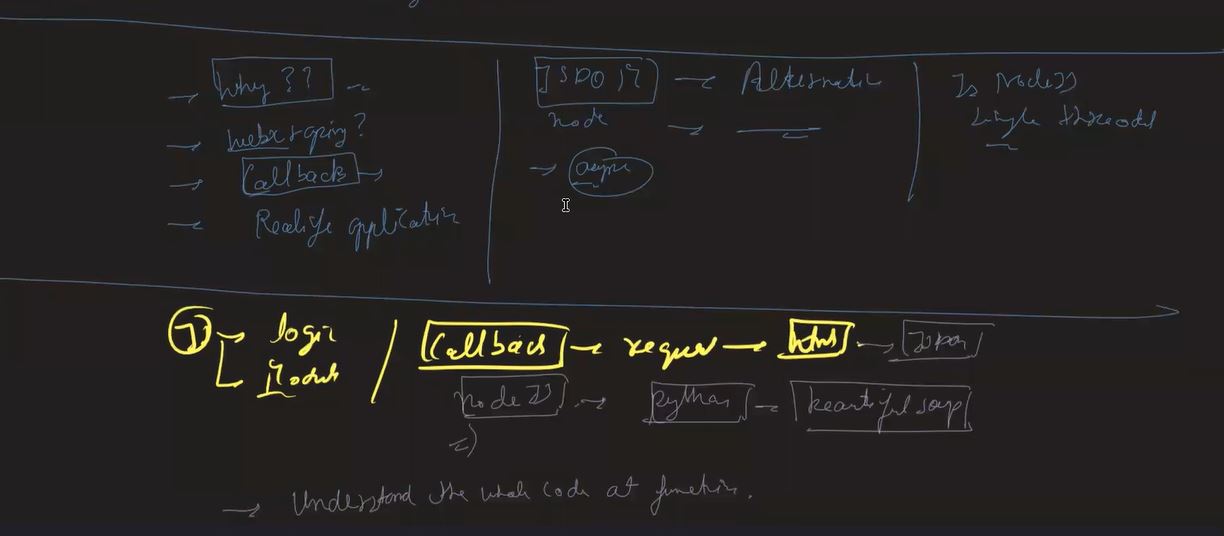 Why ??
webscraping?
Callbacks
Reallife application
JSDOM
node
async
Alternative
Is NodeJS
single threaded
JS
logic
Module
Callback
request
html
JSDOM
NodeJS
Python
beautiful soup
Understand the whole code at function.